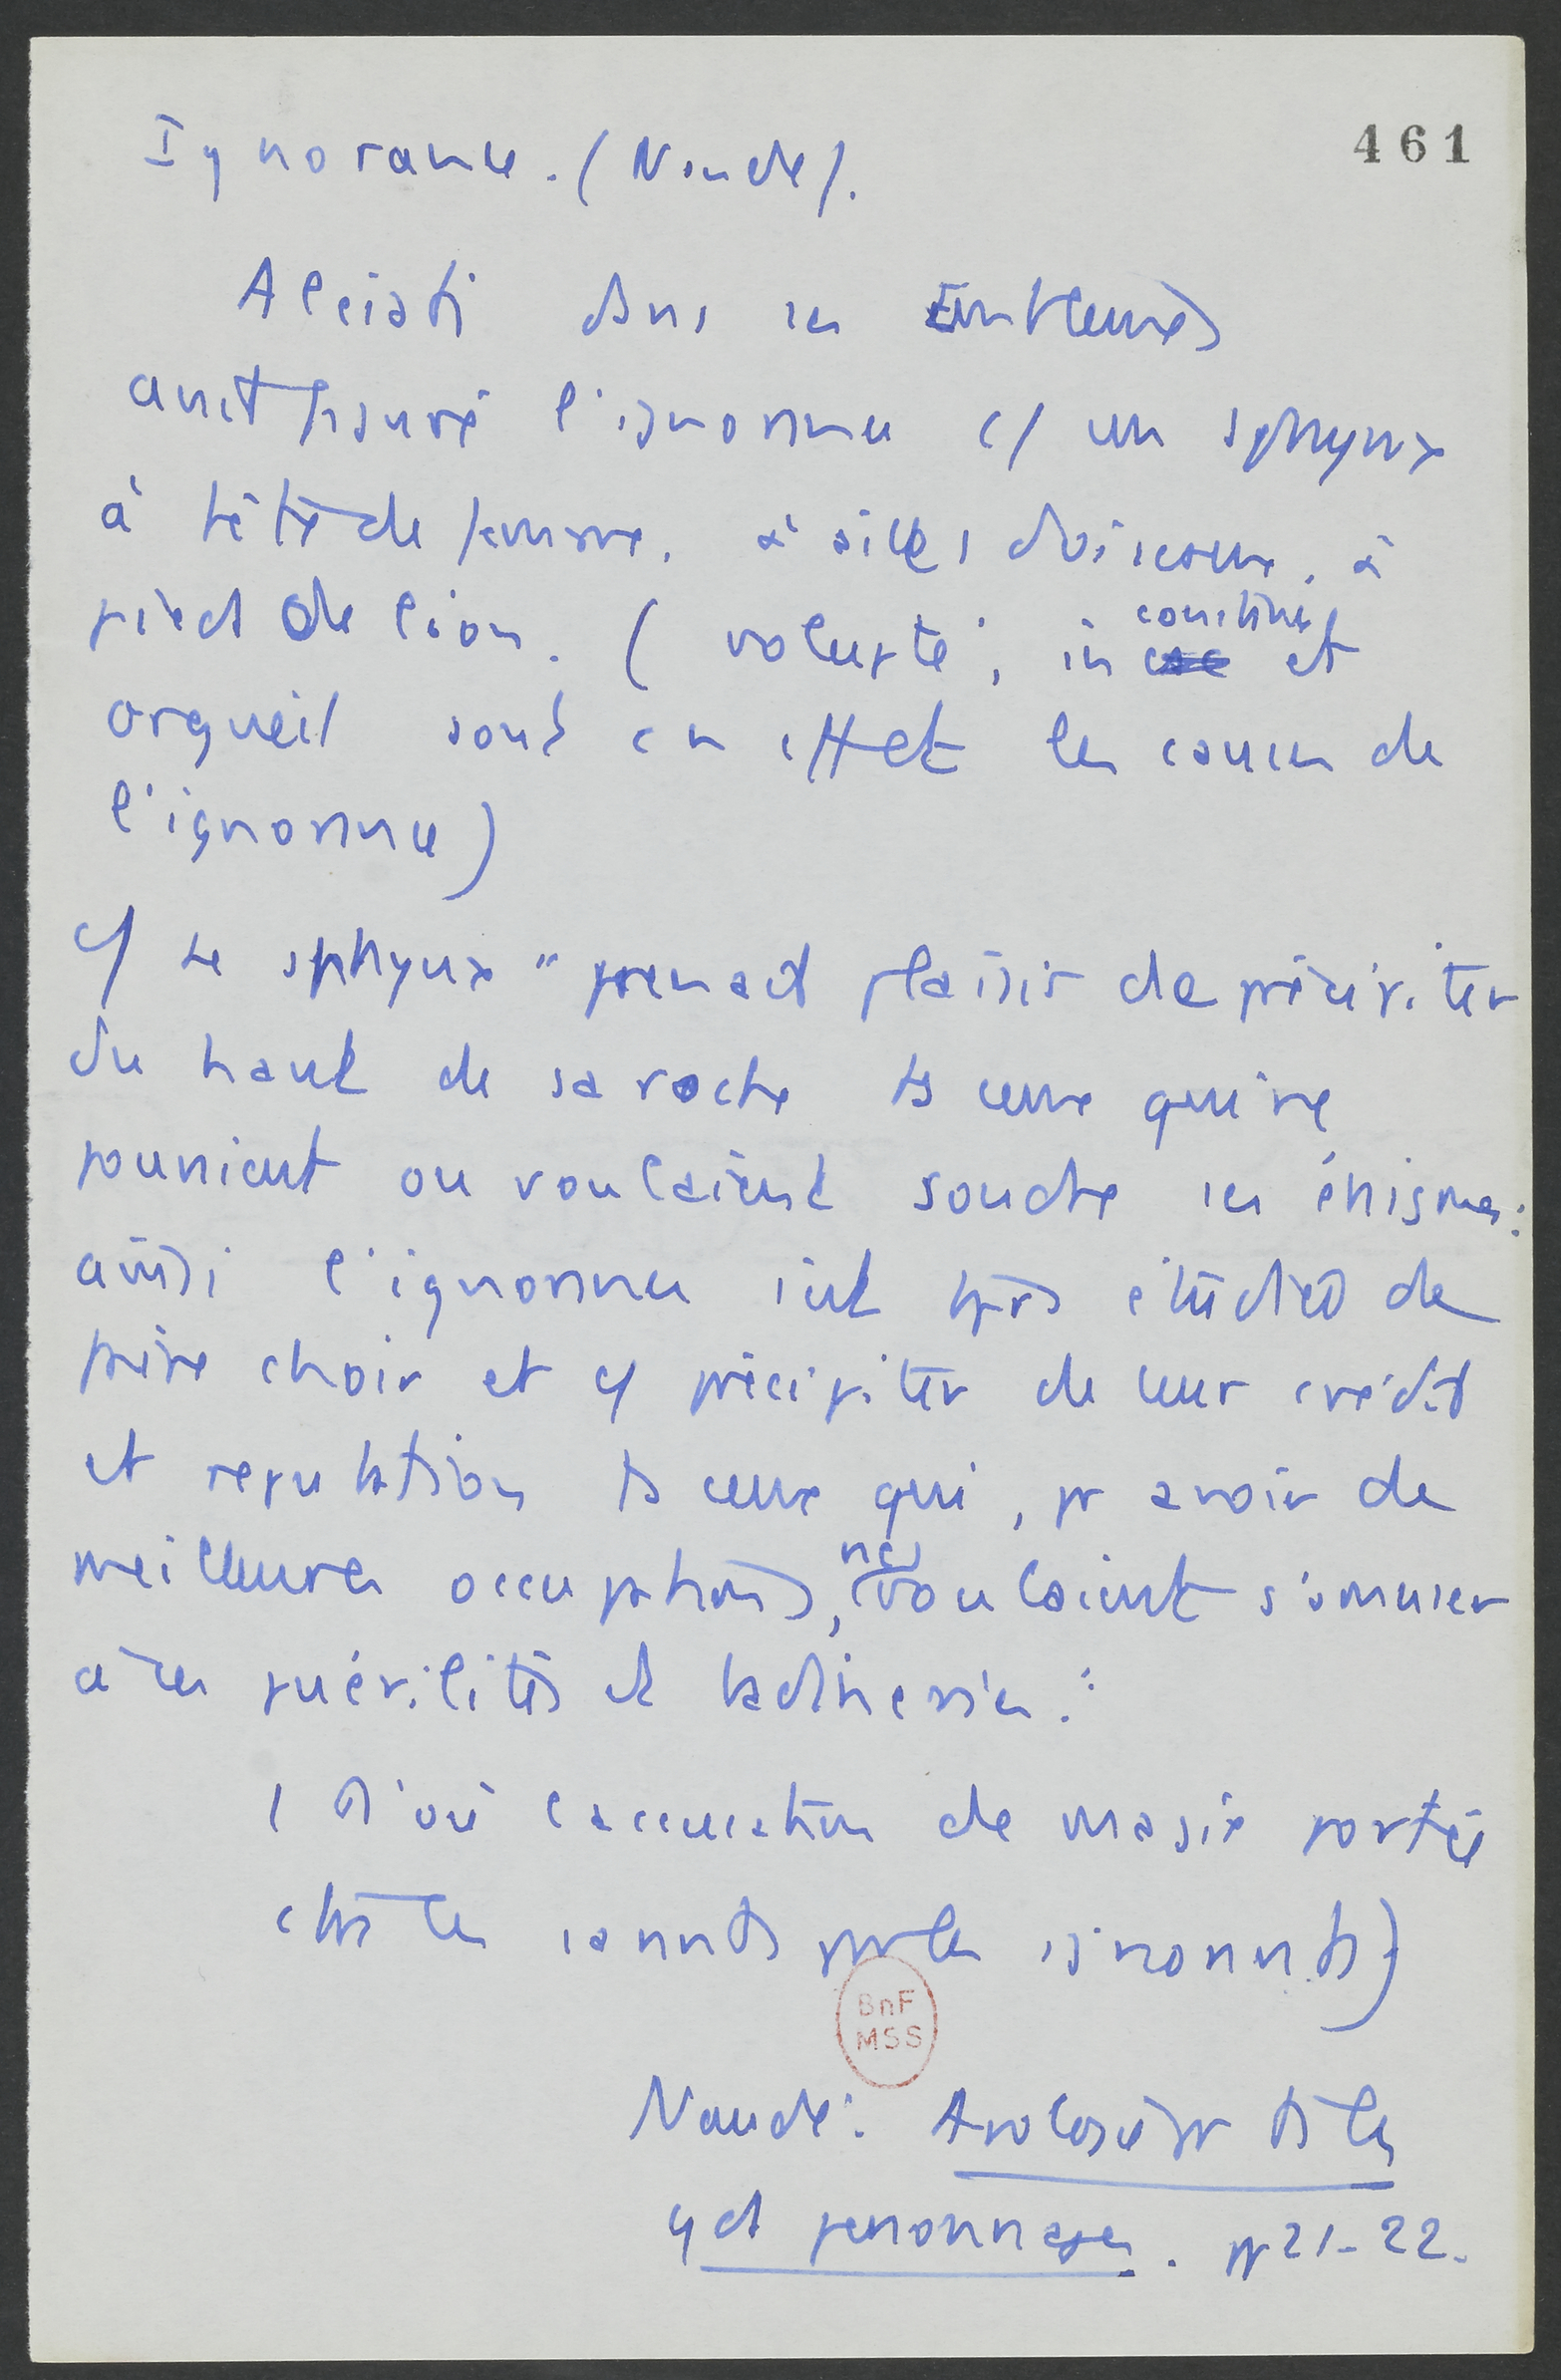 461
Ignorance. (Naudé).
Alciati dans ses Emblemes
avait figuré l'ignorance c/ un sphynx
à tête de femme, à ailes d'oiseaux, à
pied de lion. ( volupté, inconstance et
orgueil sont en effet les causes de
l'ignorance)
C/ le sphynx "prenait plaisir de précipiter
du haut de sa roche ts ceux qui ne
pouvaient ou voulaient soudre ses énigmes:
ainsi l'ignorance s'est tjrs étudiée de
faire choir et c/ précipiter de leur crédit
et reputation ts ceux qui, pr avoir de
meilleures occupations, ne voulaient s'amuser
à ces puérilités et badineries."
( D'où l'accusation de magie portée
ctre les savants par les ignorants)
BnF
MSS
Naudé: Apologie pr ts les
gds personnages. pp 21-22.